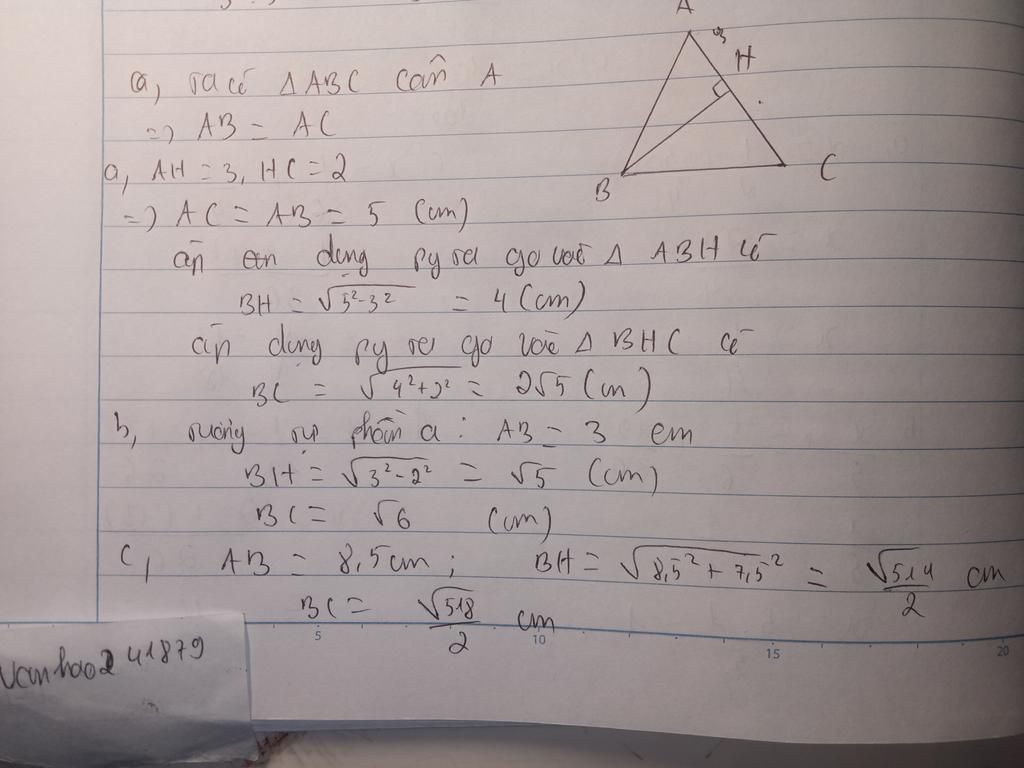 A
3
H
B
C
a, ta có Δ ABC cân A
=> AB = AC
a, AH = 3, HC = 2
=> AC = AB = 5 (cm)
áp dụng py ta go vào Δ ABH có
BH = √5²-3² = 4 (cm)
áp dụng py ta go vào Δ BHC có
BC = √4²+2² = 2√5 (cm)
b, tương tự phần a : AB = 3 cm
BH = √3²-2² = √5 (cm)
BC = √6 (cm)
c, AB = 8,5cm ; BH = √8,5²+7,5² = √514/2 cm
BC = √518/2 cm
5 10 15 20
vanhao241879